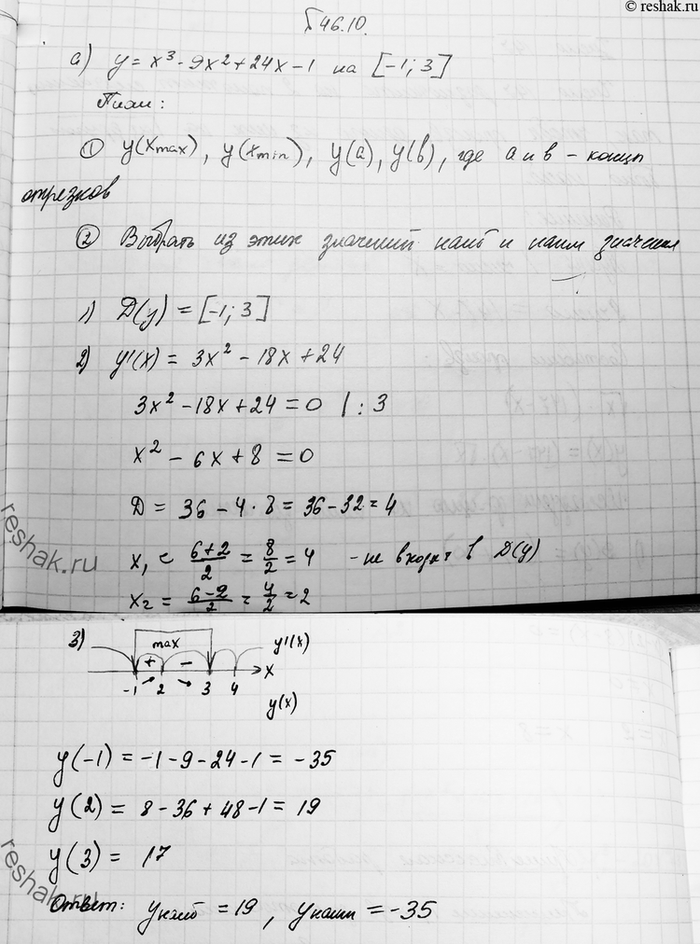 © reshak.ru
№46.10.
а) y = x³ - 9x² + 24x - 1 на [-1; 3]
План:
① y(xmax), y(xmin), y(a), y(b), где a и b - конци
отрезков
② Выбрать из этих значений наиб и наим значения
1) D(y) = [-1; 3]
2) y'(x) = 3x² - 18x + 24
3x² - 18x + 24 = 0 | : 3
x² - 6x + 8 = 0
D = 36 - 4 · 8 = 36 - 32 = 4
x₁ = (6+2)/2 = 8/2 = 4 - не входит в D(y)
x₂ = (6-2)/2 = 4/2 = 2
reshak.ru
3) max y'(x)
+ - x
-1 2 3 4
y(x)
y(-1) = -1 - 9 - 24 - 1 = -35
y(2) = 8 - 36 + 48 - 1 = 19
y(3) = 17
Ответ: yнаиб = 19, yнаим = -35
reshak.ru